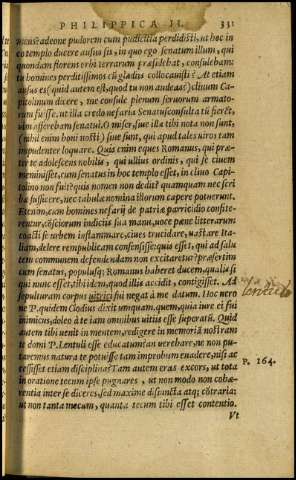 PHILIPPICA II. 331
mensæ? adeone pudorem cum pudicitia perdidisti, ut hoc in
eo templo dicere ausus sis, in quo ego senatum illum, qui
quondam florens orbi terrarum præsidebat, consulebam:
tu homines perditissimos cū gladijs collocausti? At etiam
ausus es (quid autem est, quod tu non audeas?) cliuum Ca-
pitolinum dicere, me consule plenum seruorum armato-
rum fuisse. ut illa credo nefaria Senatusconsulta tū fierēt,
uim afferebam senatui. O miser, siue illa tibi nota non sunt,
(nihil enim boni nosti) siue sunt, qui apud tales uiros tam
impudenter loquare. Quis enim eques Romanus, quis præ-
ter te adolescens nobilis, quis ullius ordinis, qui se ciuem
meminisset, cum senatus in hoc templo esset, in cliuo Capi-
tolino non fuit? quis nomen non dedit? quamquam nec scri
bæ sufficere, nec tabulæ nomina illorum capere potuerunt.
Etenim, cum homines nefarij de patriæ parricidio confite-
rentur, cōsciorum indicijs sua manu, uoce pæne litterarum
coacti se urbem inflammare, ciues trucidare, uastare Ita-
liam, delere rempublicam consensisse: quis esset, qui ad salu
tem communem defendendam non excitaretur? præsertim
cum senatus, populusq; Romanus haberet ducem, qualis si
qui nunc esset, tibi idem, quod illis accidit, contigisset. Ad
sepulturam corpus uitrici sui negat à me datum. Hoc uero
ne P. quidem Clodius dixit umquam. quem, quia iure ei fui
inimicus, doleo à te iam omnibus uitijs esse superatū. Quid
autem tibi uenit in mentem, redigere in memoriā nostram
te domi P. Lentuli esse educatum? an uerebare, ne non pu-
taremus natura te potuisse tam improbum euadere, nisi ac
cessisset etiam disciplina? Tam autem eras excors, ut tota
in oratione tecum ipse pugnares, ut non modo non cohæ-
rentia inter se diceres, sed maxime disiuncta atq; cōtraria:
ut non tanta mecum, quanta tecum tibi esset contentio.
Vt
P. 164.